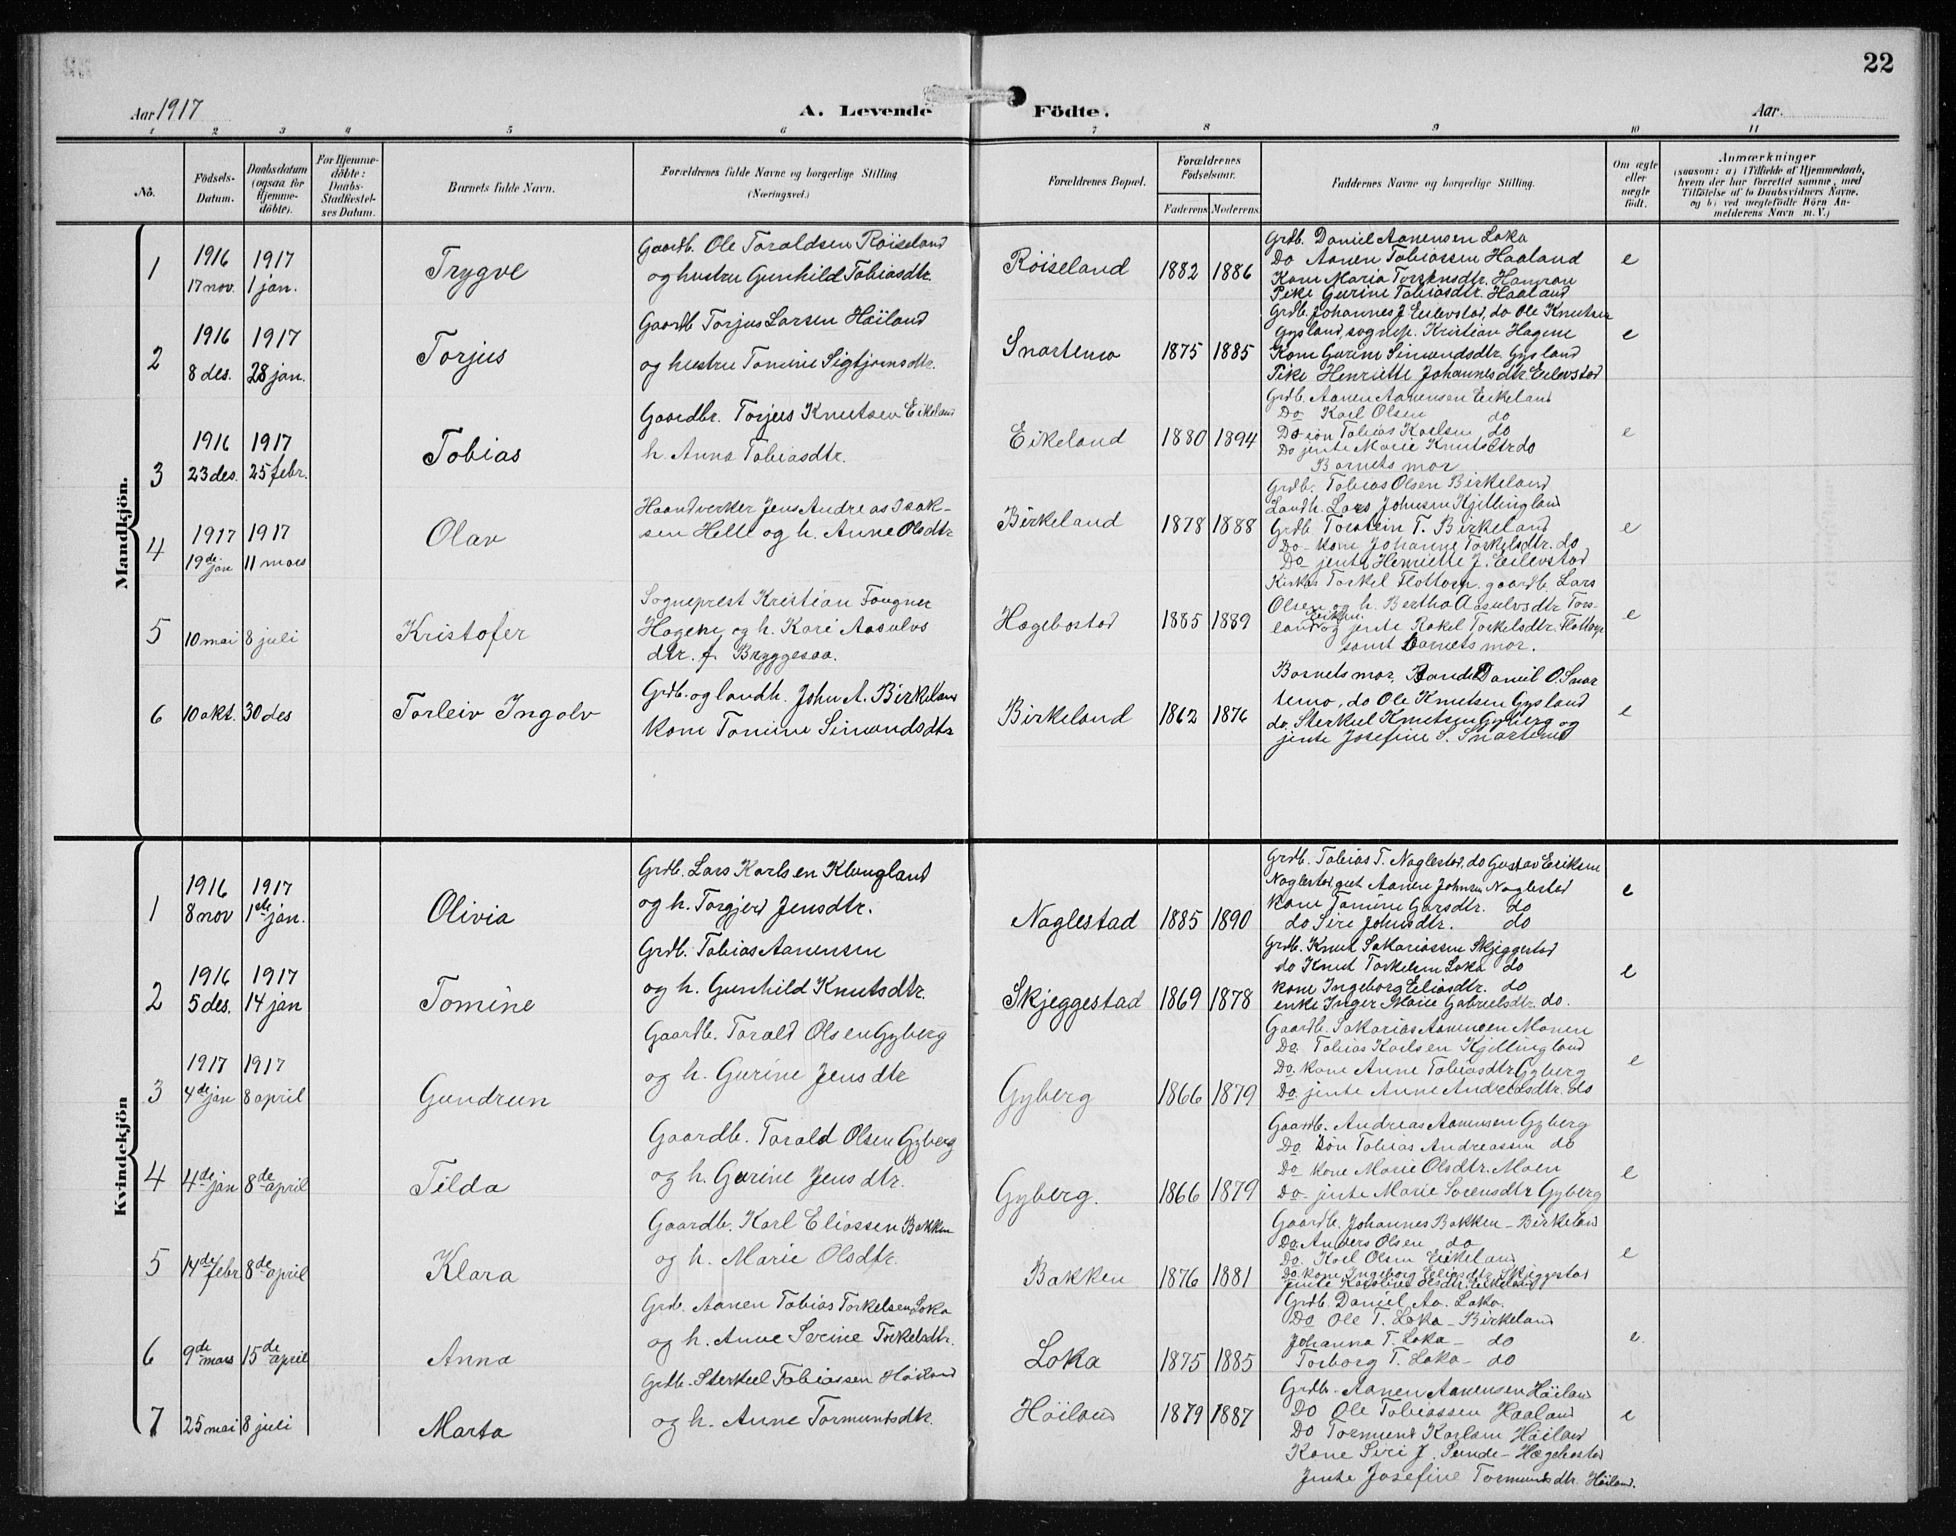 22
Aar 1917
A. Levende Födte.
Aar.
1 2 3 4 5 6 7 8 9 10 11
No.
Födsels-Datum.
Daabsdatum (ogsaa for Hjemme-döbte).
For Hjemme-döbte: Daabs-Stadfæstel-ses Datum.
Barnets fulde Navn.
Forældrenes fulde Navne og borgerlige Stilling (Næringsvei.)
Forældrenes Bopæl.
Forældrenes Födselsaar.
Faderens. Moderens.
Faddernes Navne og borgerlige Stilling.
Om ægte eller uægte födt.
Anmærkninger
(saasom: a) i Tilfælde af Hjemmedaab, hvem der har forrettet samme, med Tilföielse af to Daabsvidners Navne, og b) ved uægtefödte Börn An-melderens Navn m. V.)
Mandkjön.
1 1916 17 nov. 1917 1 jan. Trygve
Gaardb. Ole Toraldsen Röiseland
og hustru Gunhild Tobiasdtr.
Röiseland 1882 1886
Grdb. Daniel Aanensen Loka
Do Aanen Tobiassen Haaland
Kone Maria Torkensdtr. Hamran
Pike Gurine Tobiasdtr. Haaland
e
2 1916 8 des. 1917 28 jan. Torjus
Gaardb Torjus Larsen Höiland
og hustru Tomine Sigbjörnsdtr.
Snartemo 1875 1885
Grdb. Johannes J Eilevstad, do Ole Knutsen
Gysland, sognep. Kristian Hagene
Kone Gurine Simondsdtr. Gysland
Pike Henriette Johannesdtr. Eilevstad
e
3 1916 23 des. 1917 25 febr. Tobias
Gaardbr. Torjus Knutsen Eikeland
h. Anna Tobiasdtr.
Eikeland 1880 1894
Grdb. Aanen Aanensen Eikeland
Do Karl Olsen do
Do sön Tobias Karlsen do
Do jente Marie Knutsdtr do
Barnets mor
e
4 1917 19de jan 1917 11 mars Olav
Haandverker Jens Andreas Isak-
sen Helle og h. Anne Olsdtr
Birkeland 1878 1888
Grdb. Tobias Olsen Birkeland
Landh. Lars Johnsen Kjillingland
Grdb Torstein T. Birkeland
Do - kone Johanne Torkelsdtr. do
Do jente Henriette J. Eilevstad
e
5 10 mai 8 juli Kristofer
Sogneprest Kristian Fougner
Hagene og h. Kari Aasulvs
dtr. f. Bryggesaa.
Hægebostad 1885 1889
Kirkes. Torkel Tlottorp. gaardb. Lars
Olsen og h. Bertha Aasulvsdtr Tors-
land og Eiken jente Rakel Torkelsdtr. Tlottorp
samt barnets mor.
e
6 10 okt. 30 des Torleiv Ingolv
Grdb. og landh. John A. Birkeland
Kone Tomine Simondsdtr
Birkeland 1862 1876
Barnets mor, Bonde Daniel O. Snar
temo, do Ole Knutsen Gysland
do. Sterkel Knutsen Gyberg og
jente Josefine S. Snartemo
e
Kvindekjön
1 1916 8 nov 1917 1ste jan. Olivia
Grdb. Lars Karlsen Klungland
og h. Torgjerd Jensdtr.
Naglestad 1885 1890
Grdb. Tobias T. Naglestad, do Gustav Eriksen
Naglestad, gut Aanen Johnsen Naglestad
Kone Tomine Garsdtr. do
do Siri Johnsdtr. do
e
2 1916 5 des. 1917 14 jan Tomine
Grdb. Tobias Aanensen
og h. Gunhild Knutsdtr.
Skjeggestad 1869 1878
Grdb. Knut Sakariassen Skjeggestad
do Knut Torkelsen Loka do
kone Ingeborg Eliasdtr. do
enke Inger Marie Gabrielsdtr. do.
e
3 1917 4de jan 1917 8 april Gundrun
Gaardb. Torald Olsen Gyberg
og h. Gurine Jensdtr
Gyberg 1866 1879
Gaardb. Sakarias Aanensen Monen
Do. Tobias Karlsen Kjillingland
Do. kone Anne Tobiasdtr Gyberg
Do. jente Anne Andreasdtr. do
e
4 4de jan 8de april Tilda
Gaardb. Torald Olsen Gyberg
og h. Gurine Jensdtr.
Gyberg. 1866 1879
Gaardb. Andreas Aanensen Gyberg
Do sön Tobias Andreassen do
Do kone Marie Olsdtr. Moen
Do jente Marie Sorensdtr Gyberg
e
5 14de febr 8de april Klara
Gaardb. Karl Eliassen Bakken
og h. Marie Olsdtr.
Bakken 1876 1881
Gaardb. Johannes Bakken - Birkeland
Do Anders Olsen do
Do. Karl Olsen Eikeland
Do. kone Ingeborg Eliasdtr. Skjeggestad
jente Karoline Olsdtr. Eikeland
e
6 9de mars 15de april Anna
Grdb. Aanen Tobias Torkelsen Loka
og h. Anne Serine Torkelsdtr.
Loka 1875 1885
Grdb. Daniel Aa. Loka.
Do Ole T. Loka - Birkeland
Johanna T. Loka - do
Torborg T. Loka - do
e.
7 25 mai 8 juli Marta
Grdb. Sterkel Tobiassen Höiland
og h. Anne Tormundsdtr.
Höiland 1879 1887
Grdb. Aanen Aanensen Höiland
Do Ole Tobiassen Haaland
Do Tormund Karlsen Höiland
Kone Siri J. Sunde - Hægebostad
Jente Josefine Tormundsdtr. Höiland.
e